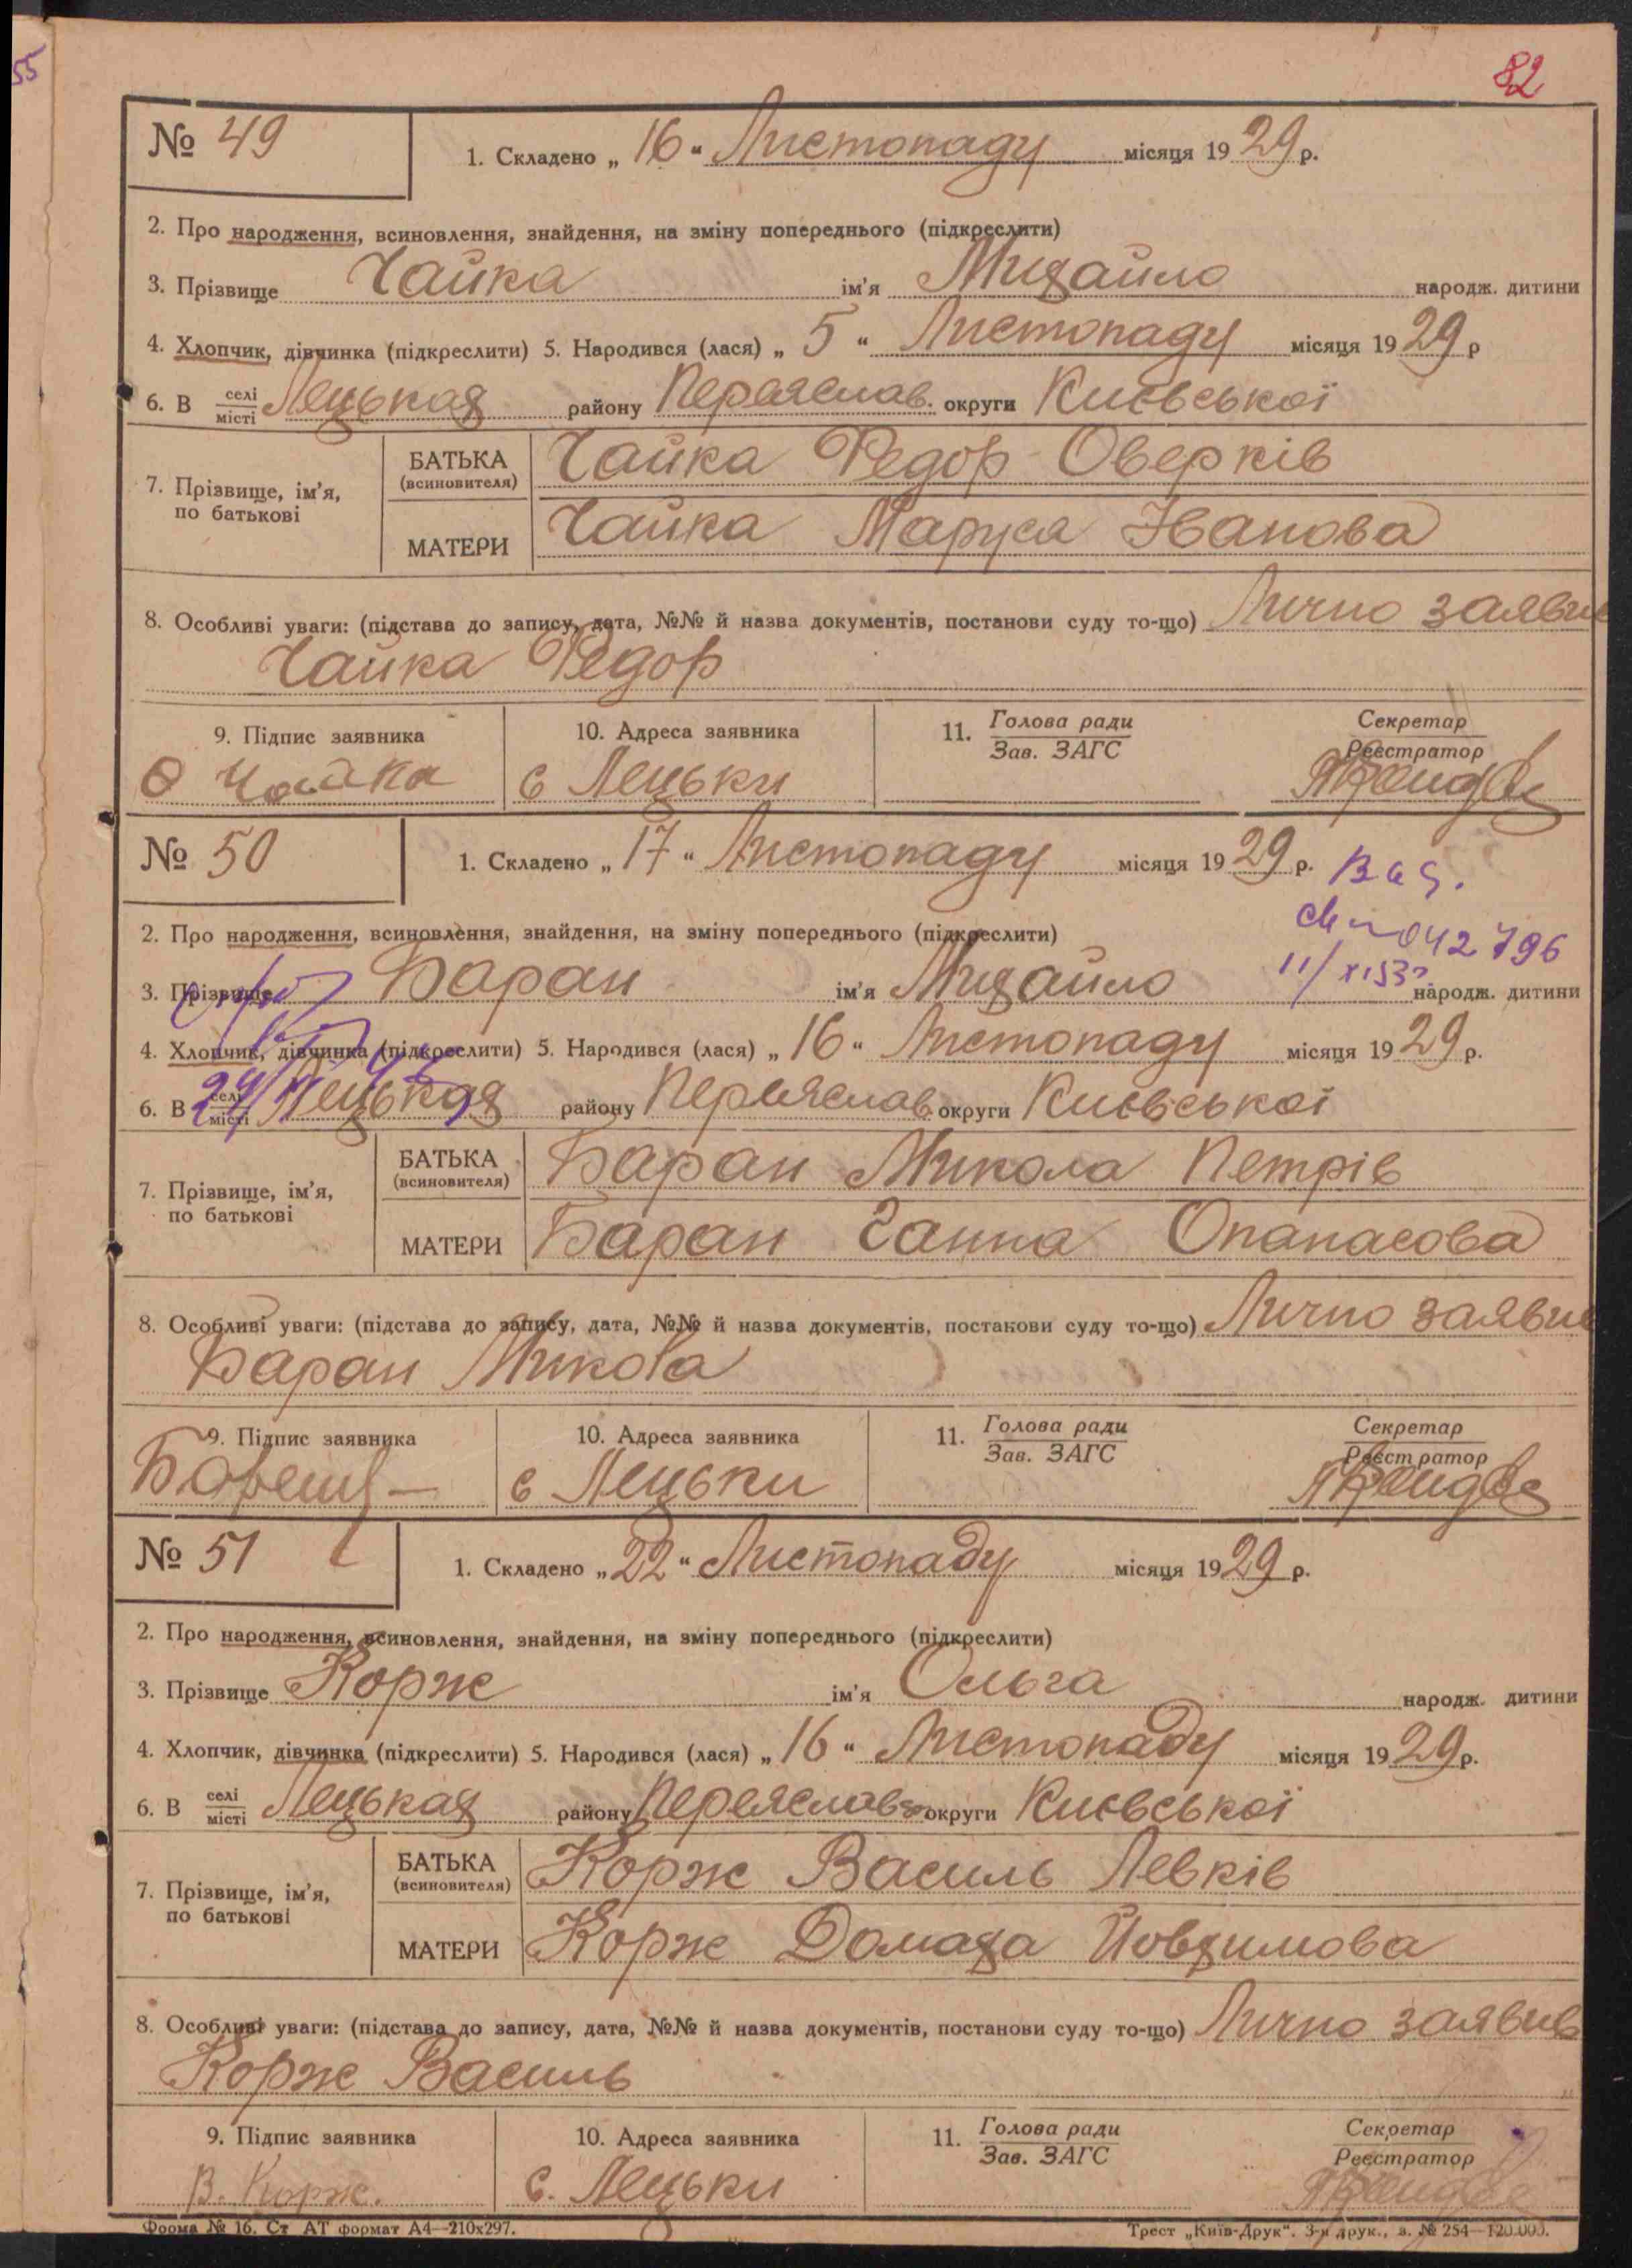 55
82
№ 49
1. Складено „ 16 “ Листопаду місяця 1929 р.
2. Про народження, всиновлення, знайдення, на зміну попереднього (підкреслити)
3. Прізвище Чайка ім'я Михайло народж. дитини
4. Хлопчик, дівчинка (підкреслити) 5. Народився (лася) „ 5 “ Листопаду місяця 1929 р
6. В селі місті Лецьках району Переяслав. округи Києвської
7. Прізвище, ім'я, по батькові
БАТЬКА (всиновителя) Чайка Федор Оверків
МАТЕРИ Чайка Маруся Іванова
8. Особливі уваги: (підстава до запису, дата, №№ й назва документів, постанови суду то-що) Лично заявив
Чайка Федор
9. Підпис заявника 10. Адреса заявника 11. Голова ради Зав. ЗАГС Секретар Реєстратор
Ѳ Чайка с Лецьки
№ 50
1. Складено „ 17 “ Листопаду місяця 1929 р.
2. Про народження, всиновлення, знайдення, на зміну попереднього (підкреслити)
042796
3. Прізвище Баран ім'я Михайло народж. дитини
4. Хлопчик, дівчинка (підкреслити) 5. Народився (лася) „ 16 “ Листопаду місяця 1929 р.
6. В селі місті Лецьках району Переяслав. округи Києвської
7. Прізвище, ім'я, по батькові
БАТЬКА (всиновителя) Баран Микола Петрів
МАТЕРИ Баран Ганна Опанасова
8. Особливі уваги: (підстава до запису, дата, №№ й назва документів, постанови суду то-що) Лично заявив
Баран Микола
9. Підпис заявника 10. Адреса заявника 11. Голова ради Зав. ЗАГС Секретар Реєстратор
с Лецьки
№ 51
1. Складено „ 22 “ Листопаду місяця 1929 р.
2. Про народження, всиновлення, знайдення, на зміну попереднього (підкреслити)
3. Прізвище Корж ім'я Ольга народж. дитини
4. Хлопчик, дівчинка (підкреслити) 5. Народився (лася) „ 16 “ Листопаду місяця 1929 р.
6. В селі місті Лецьках району Переяслав округи Києвської
7. Прізвище, ім'я, по батькові
БАТЬКА (всиновителя) Корж Василь Левків
МАТЕРИ Корж Домаха Йовхимова
8. Особливі уваги: (підстава до запису, дата, №№ й назва документів, постанови суду то-що) Лично заявив
Корж Василь
9. Підпис заявника 10. Адреса заявника 11. Голова ради Зав. ЗАГС Секретар Реєстратор
В. Корж. с. Лецьки
Форма № 16. Ст АТ формат А4—210х297. Трест „Київ-Друк“. 3-я друк., з. № 254—120.000.